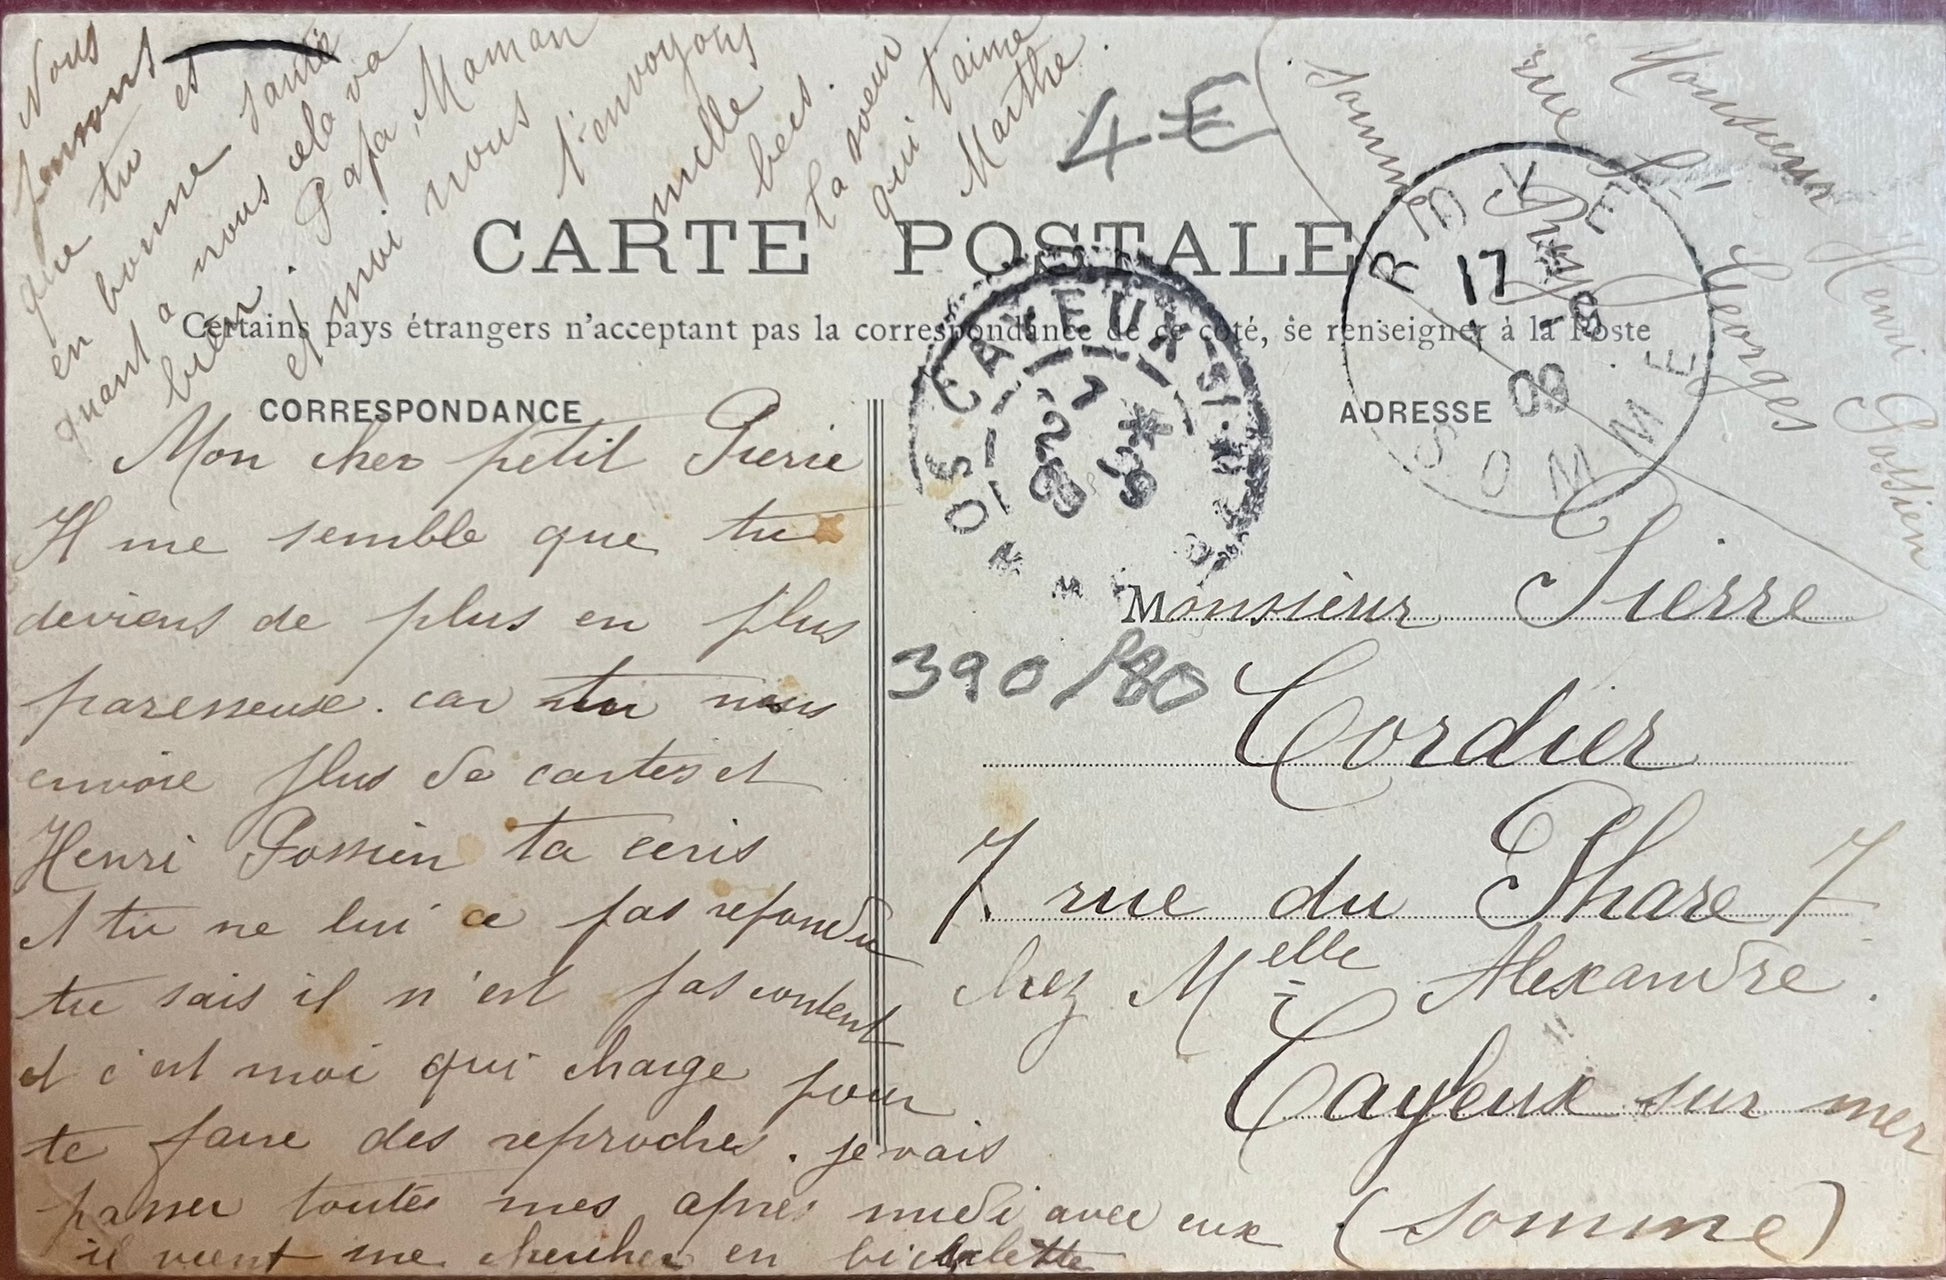 CARTE POSTALE
Certains pays étrangers n'acceptent pas la correspondance de ce côté, se renseigner à la Poste
CORRESPONDANCE
Mon cher petit Pierre
Il me semble que tu
deviens de plus en plus
paresseux. car tu nous
envoie plus de cartes et
Henri Possien ta ecris
et tu ne lui a pas répondu
tu sais il n'est pas content
et c'est moi qui charge pour
te faire des reproches. je vais
passer toutes mes après midi avec eux
il vient me chercher en biciclette
Nous
pensons
que tu es
en bonne santé
quant a nous cela va
bien. Papa, Maman
et moi nous t'envoyons
mille becs.
ta soeur
qui t'aime
Marthe.
4€
390/80
ADRESSE
Monsieur Pierre
Cordier
7 rue du Phare 7
chez Melle Alexandre.
Cayeux sur mer
(Somme)
Monsieur Henri Possien
rue St Georges
Somme
CAYEUX-S-MER
17
09
SOMME